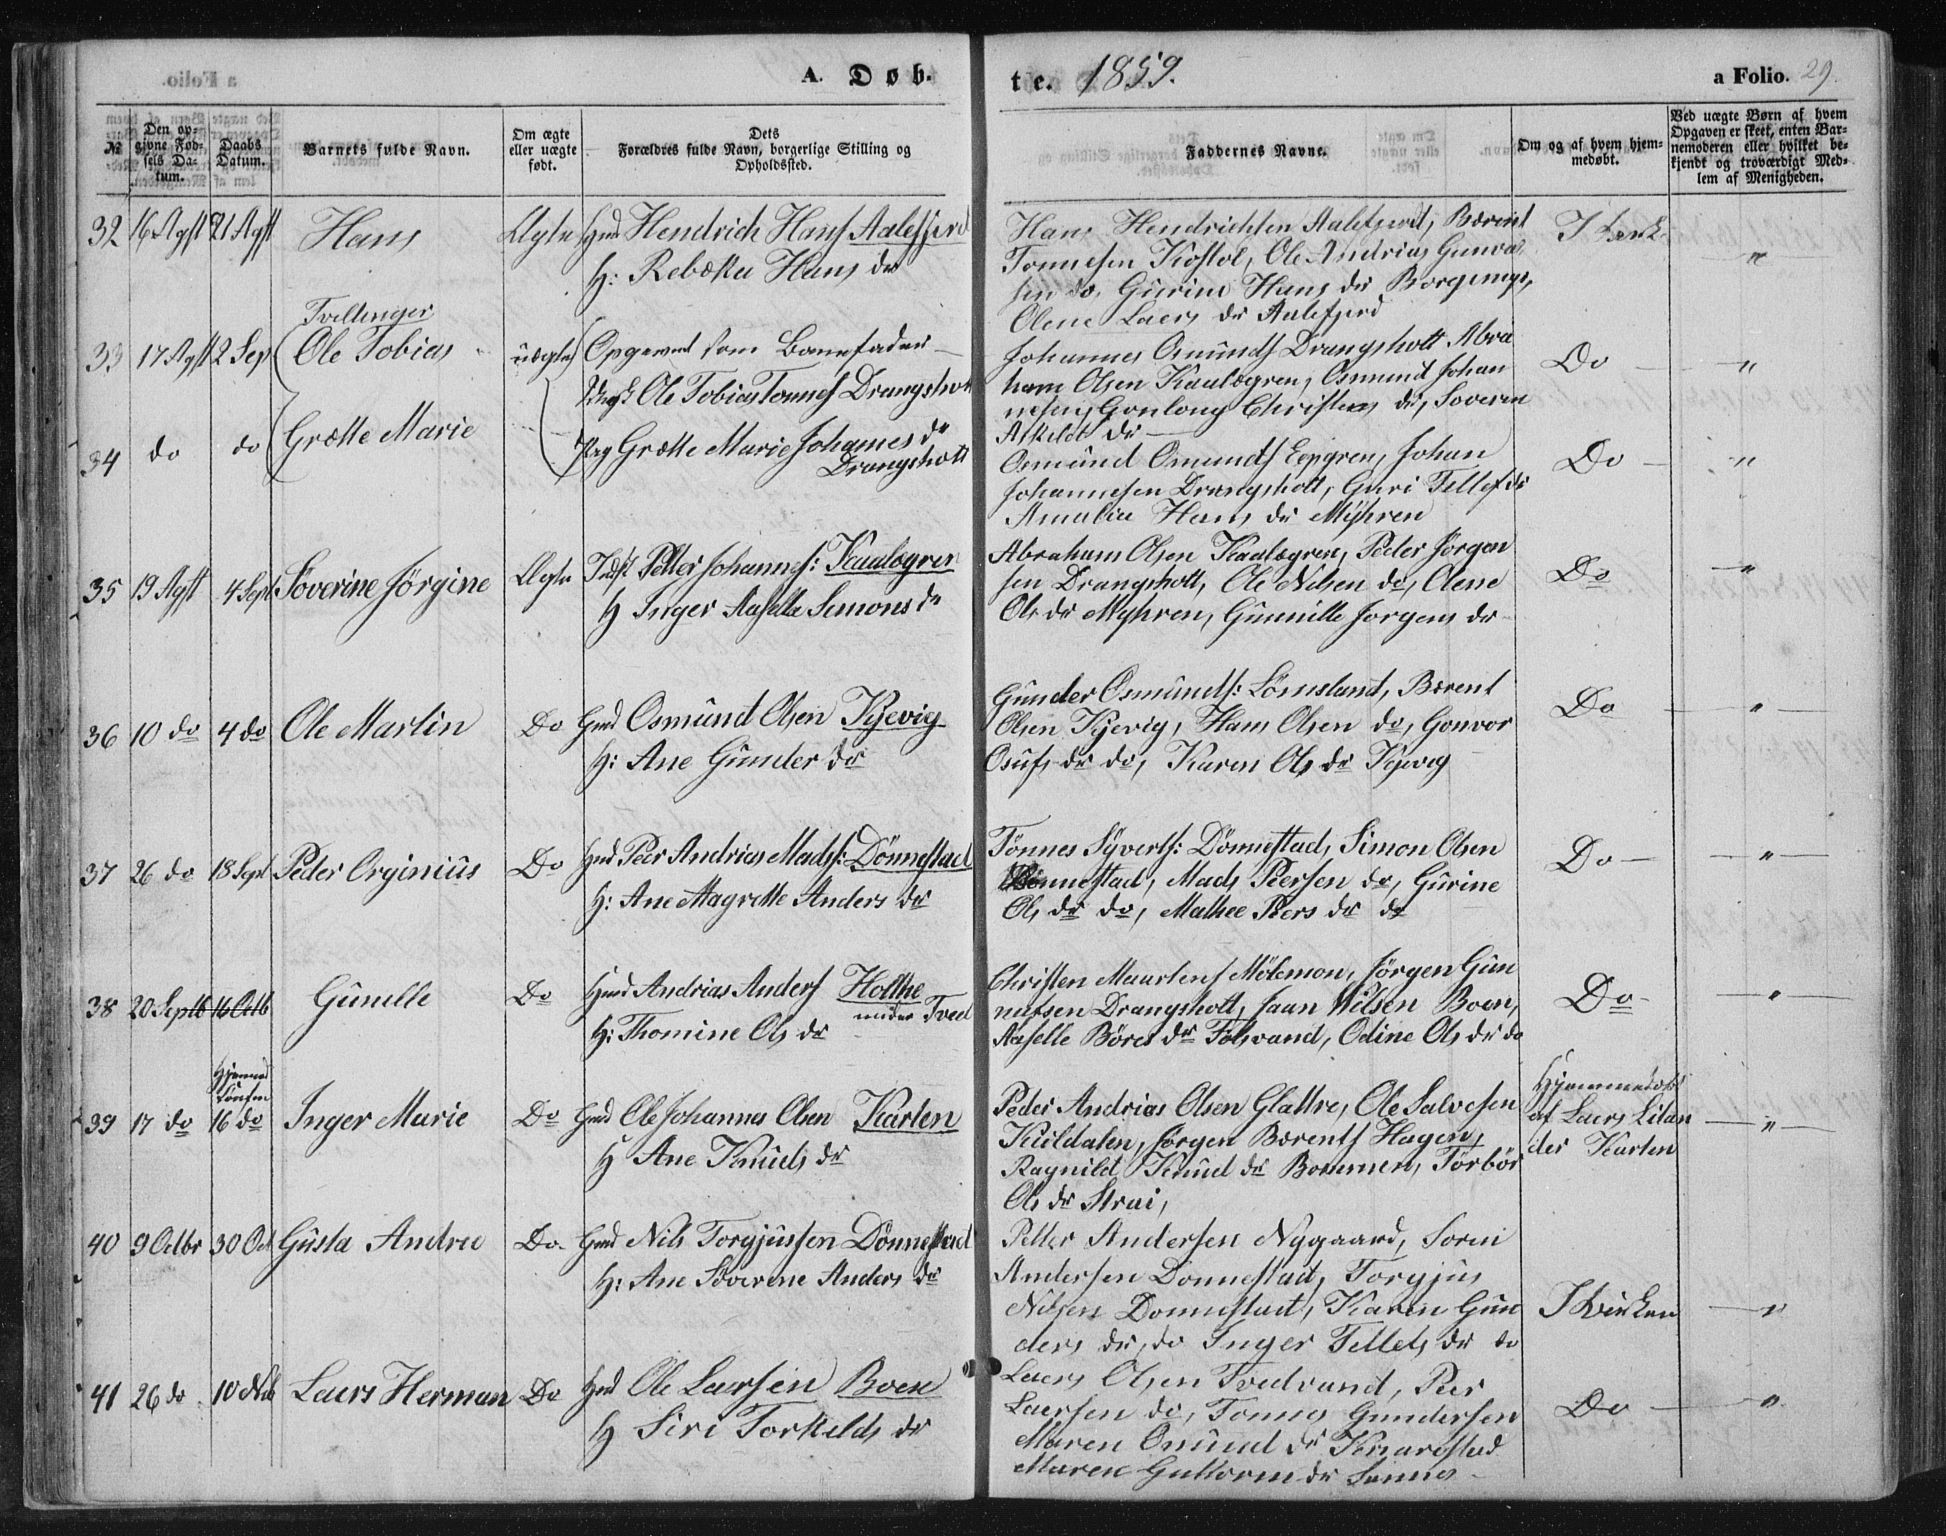 A. Døb-
te. 1859.
a Folio. 29.
№
Den op-
givne Fød-
sels Da-
tum.
Daabs
Datum.
Barnets fulde Navn.
Om ægte
eller uægte
født.
Dets
Forældres fulde Navn, borgerlige Stilling og
Opholdssted.
Faddernes Navne.
Om og af hvem hjem-
medøbt.
Ved uægte Børn af hvem
Opgaven er skeet, enten Bar-
nemoderen eller hvilket be-
kjendt og troværdigt Med-
lem af Menigheden.
32 16 Agst 21 Agst Hans Ægte Gmd Hendrich Hans Aalefjerd
H: Rebæka Hans dr
Hans Hendrichsen Aalefjerd, Bærent
Tonnesen Kostøl, Ole Andrias Gunval
sen do, Gurine Hans dr Borgemyr,
Olene Laers dr Aalefjerd
"
Tvillinger
33 17 Agst 2 Sep Ole Tobias uægte Opgivet som Barnefader
Ole Tobias Tonnes Drangsholt
Johannes Osmunds Drangsholt Abra
ham Olsen Kaulægren, Osmund Johan
nesen, Gonlong Christens dr, Soveren
Askild dr
Do "
34 do do Grætte Marie
Pig Grætte Marie Johannes dr
Drangsholt
Osmund Osmunds Eegren, Johan
Johannesen Drangsholt, Guri Tellefs dr
Amalia Hans dr Myhren
Do "
35 19 Agst 4 Sept Søverine Jørgine Ægte Indst Petter Johannes: Kaulægren
H Inger Aaselle Semons dr
Abraham Olsen Kaulægren, Peder Jørgen
sen Drangsholt, Ole Nilsen do, Olene
Ols dr Myhren, Gunnille Jorgens dr
Do "
36 10 do 4 do Ole Martin Do Gmd Osmund Olsen Kjevig
H: Ane Gunder dr
Gunder Osmunds: Lømsland, Bærent
Olsen Kjevig, Hans Olsen do, Gonvor
Osufs dr do, Karen Ols dr Kjevig
Do "
37 26 do 18 Sept Peder Orginius Do Gmd Peer Andrias Madss: Dønnestad
H: Ane Magrette Anders dr
Tønnes Syverts: Dønnestad, Simon Olsen
Dønnestad, Mads Peersen do, Gurine
Ols dr do, Mathee Peers dr do
Do "
38 20 Septb 16 Octb Gunelle Do Hmd Andrias Anders Holthe
under Tved
H: Thomine Ols dr
Christen Maartens Mölemon, Jørgen Gun
nufsen Drangsholt, Jaan Nilsen Boen,
Aaselle Börés dr Folsvand, Odine Ols dr do
Do "
39 17 do 16 do Inger Marie Do Gmd Ole Johannes Olsen Karten
H Ane Knuds dr
Peder Andrias Olsen Glattre, Ole Salvesen
Kuildalen, Jørgen Bærents Hagen,
Ragnild Knud dr Bommen, Torbör
Ols dr Strai,
Hjemmedøbt
af Laers Lilan
der Karten
"
40 9 Octbr 30 Oct Gusta Andrea Do Gmd Nils Torgjussen Dönnestad
H: Ane Søverine Anders dr
Petter Andersen Nygaard, Soren
Andersen Donnestad, Torgjus
Nilsen Donnestad, Karen Gun
ders dr do Inger Tellefs dr do
I Kirken "
41 26 do 10 Laers Herman Do Gmd Ole Laersen Boen
H Siri Torkelds dr
Laers Olsen Tvedvand, Peer
Laersen do, Tonnes Gundersen
Maren Osmund dr Knarestad
Maren Guttorm dr
Do "